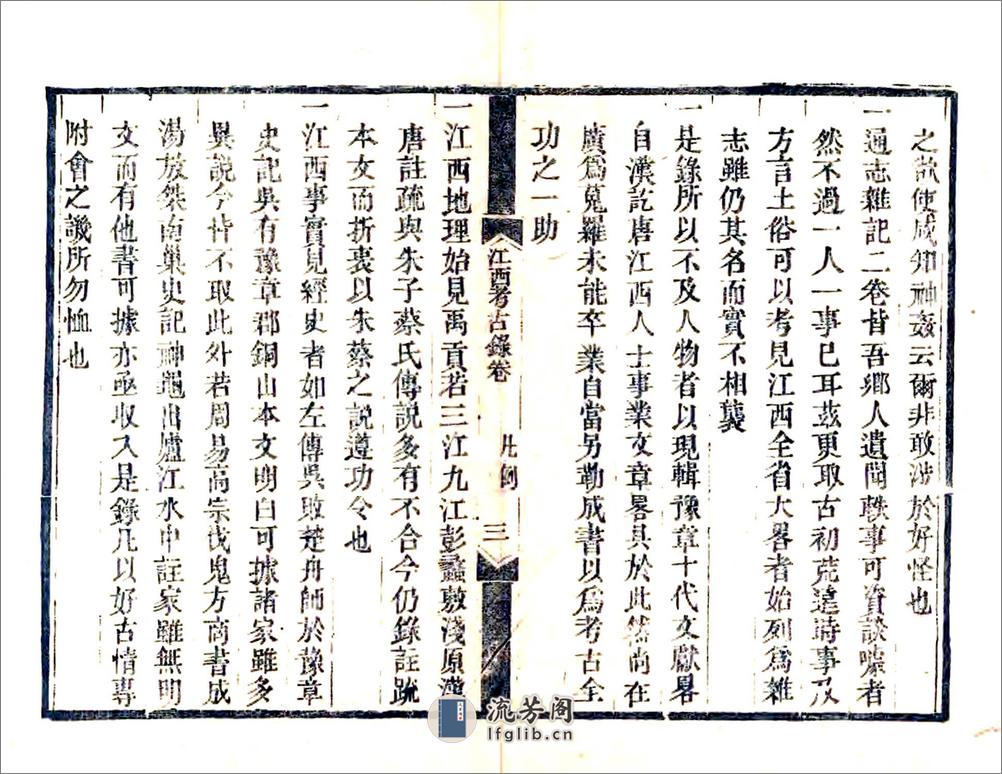 之歎使咸知神姦云爾非敢涉於好怪也
一通志雜記二卷皆吾鄉人遺聞軼事可資談噱者
然不過一人一事已耳茲更取古初荒遠時事及
方言土俗可以考見江西全省大畧者始列爲雜
志雖仍其名而實不相襲
一是錄所以不及人物者以現輯豫章十代文獻畧
自漢訖唐江西人士事業文章畧具於此然尚在
廣爲蒐羅未能卒業自當另勒成書以爲考古全
功之一助
江西考古錄卷 凡例 三
一江西地理始見禹貢若三江九江彭蠡敷淺原漢
唐註疏與朱子蔡氏傳說多有不合今仍錄註疏
本文而折衷以朱蔡之說遵功令也
一江西事實見經史者如左傳吳敗楚舟師於豫章
史記吳有豫章郡銅山本文明白可據諸家雖多
異說今皆不取此外若周易高宗伐鬼方商書成
湯放桀南巢史記神龜出廬江水中註家雖無明
文而有他書可據亦亟收入是錄凡以好古情專
附會之譏所勿恤也
流芳阁
lfglib.cn